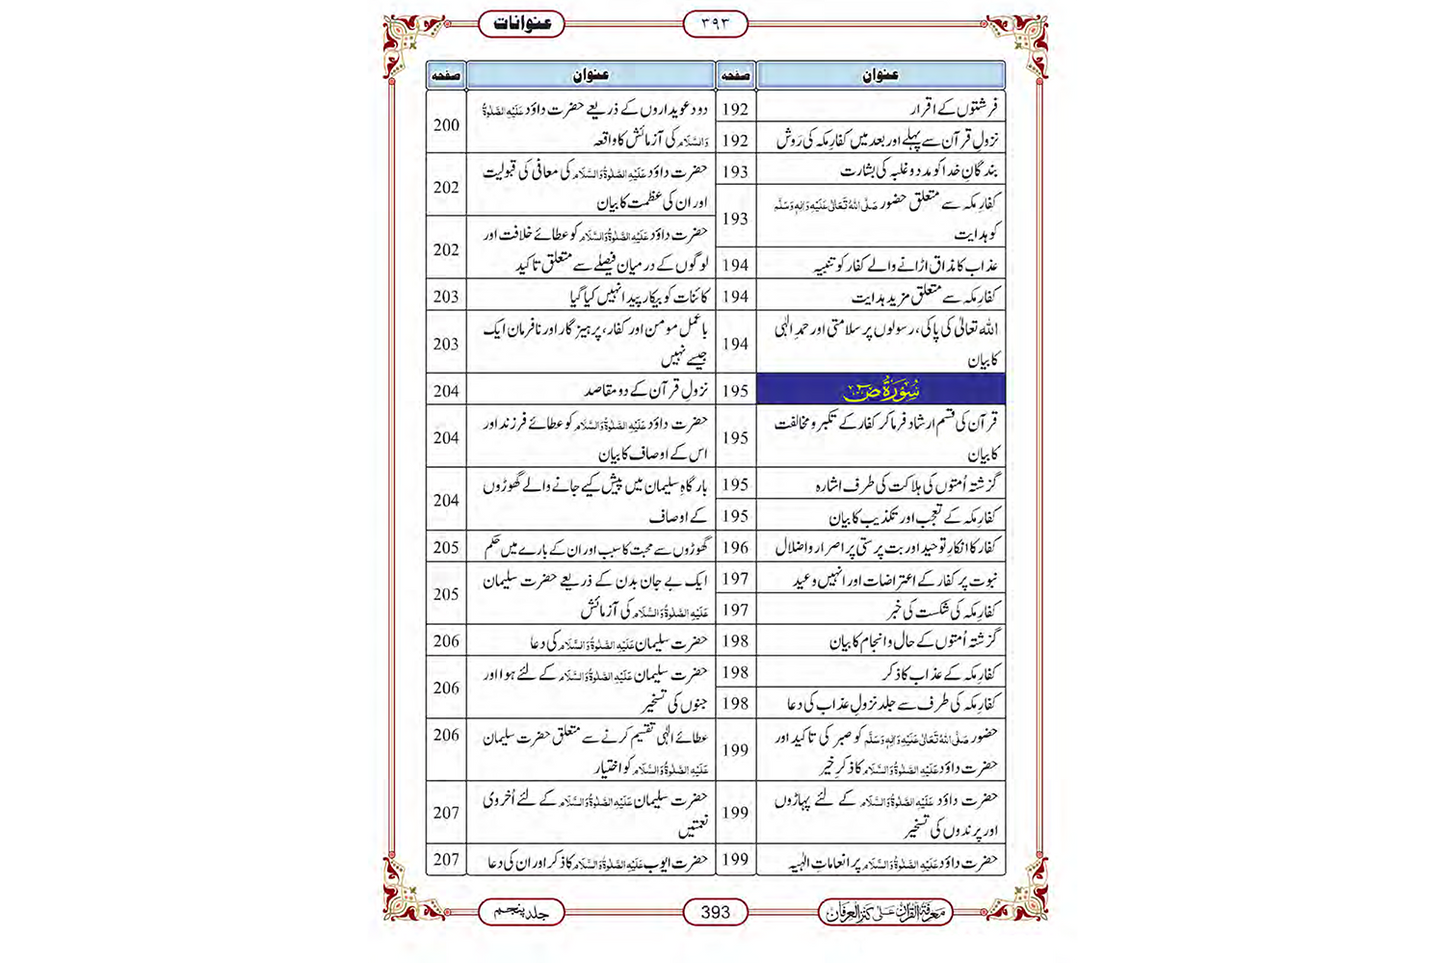 عنوانات
۳۹۳
عنوان
صفحہ
فرشتوں کے اقرار
192
نزولِ قرآن سے پہلے اور بعد میں کفارِ مکہ کی رَوِش
192
بندگانِ خدا کو مدد و غلبہ کی بشارت
193
کفارِ مکہ سے متعلق حضور صَلَّی اللہُ تَعَالٰی عَلَیْہِ وَاٰلِہٖ وَسَلَّم
کو ہدایت
193
عذاب کا مذاق اڑانے والے کفار کو تنبیہ
194
کفارِ مکہ سے متعلق مزید ہدایت
194
اللہ تعالیٰ کی پاکی، رسولوں پر سلامتی اور حمدِ الٰہی
کا بیان
194
سُوْرَۃُ صٓ
195
قرآن کی قسم ارشاد فرما کر کفار کے تکبر و مخالفت
کا بیان
195
گزشتہ اُمتوں کی ہلاکت کی طرف اشارہ
195
کفارِ مکہ کے تعجب اور تکذیب کا بیان
195
کفار کا انکارِ توحید اور بت پرستی پر اصرار و اضلال
196
نبوت پر کفار کے اعتراضات اور انہیں وعید
197
کفارِ مکہ کی شکست کی خبر
197
گزشتہ اُمتوں کے حال و انجام کا بیان
198
کفارِ مکہ کے عذاب کا ذکر
198
کفارِ مکہ کی طرف سے جلد نزولِ عذاب کی دعا
198
حضور صَلَّی اللہُ تَعَالٰی عَلَیْہِ وَاٰلِہٖ وَسَلَّم کو صبر کی تاکید اور
حضرت داؤد عَلَیْہِ الصَّلٰوۃُ وَالسَّلَام کا ذکرِ خیر
199
حضرت داؤد عَلَیْہِ الصَّلٰوۃُ وَالسَّلَام کے لئے پہاڑوں
اور پرندوں کی تسخیر
199
حضرت داؤد عَلَیْہِ الصَّلٰوۃُ وَالسَّلَام پر انعاماتِ الٰہیہ
199
عنوان
صفحہ
دو دعویداروں کے ذریعے حضرت داؤد عَلَیْہِ الصَّلٰوۃُ
وَالسَّلَام کی آزمائش کا واقعہ
200
حضرت داؤد عَلَیْہِ الصَّلٰوۃُ وَالسَّلَام کی معافی کی قبولیت
اور ان کی عظمت کا بیان
202
حضرت داؤد عَلَیْہِ الصَّلٰوۃُ وَالسَّلَام کو عطائے خلافت اور
لوگوں کے درمیان فیصلے سے متعلق تاکید
202
کائنات کو بیکار پیدا نہیں کیا گیا
203
باعمل مومن اور کفار، پرہیزگار اور نافرمان ایک
جیسے نہیں
203
نزولِ قرآن کے دو مقاصد
204
حضرت داؤد عَلَیْہِ الصَّلٰوۃُ وَالسَّلَام کو عطائے فرزند اور
اس کے اوصاف کا بیان
204
بارگاہِ سلیمان میں پیش کیے جانے والے گھوڑوں
کے اوصاف
204
گھوڑوں سے محبت کا سبب اور ان کے بارے میں حکم
205
ایک بے جان بدن کے ذریعے حضرت سلیمان
عَلَیْہِ الصَّلٰوۃُ وَالسَّلَام کی آزمائش
205
حضرت سلیمان عَلَیْہِ الصَّلٰوۃُ وَالسَّلَام کی دعا
206
حضرت سلیمان عَلَیْہِ الصَّلٰوۃُ وَالسَّلَام کے لئے ہوا اور
جنوں کی تسخیر
206
عطائے الٰہی تقسیم کرنے سے متعلق حضرت سلیمان
عَلَیْہِ الصَّلٰوۃُ وَالسَّلَام کو اختیار
206
حضرت سلیمان عَلَیْہِ الصَّلٰوۃُ وَالسَّلَام کے لئے اُخروی
نعمتیں
207
حضرت ایوب عَلَیْہِ الصَّلٰوۃُ وَالسَّلَام کا ذکر اور ان کی دعا
207
معرفۃ القرآن علی کنز العرفان
393
جلد پنجم